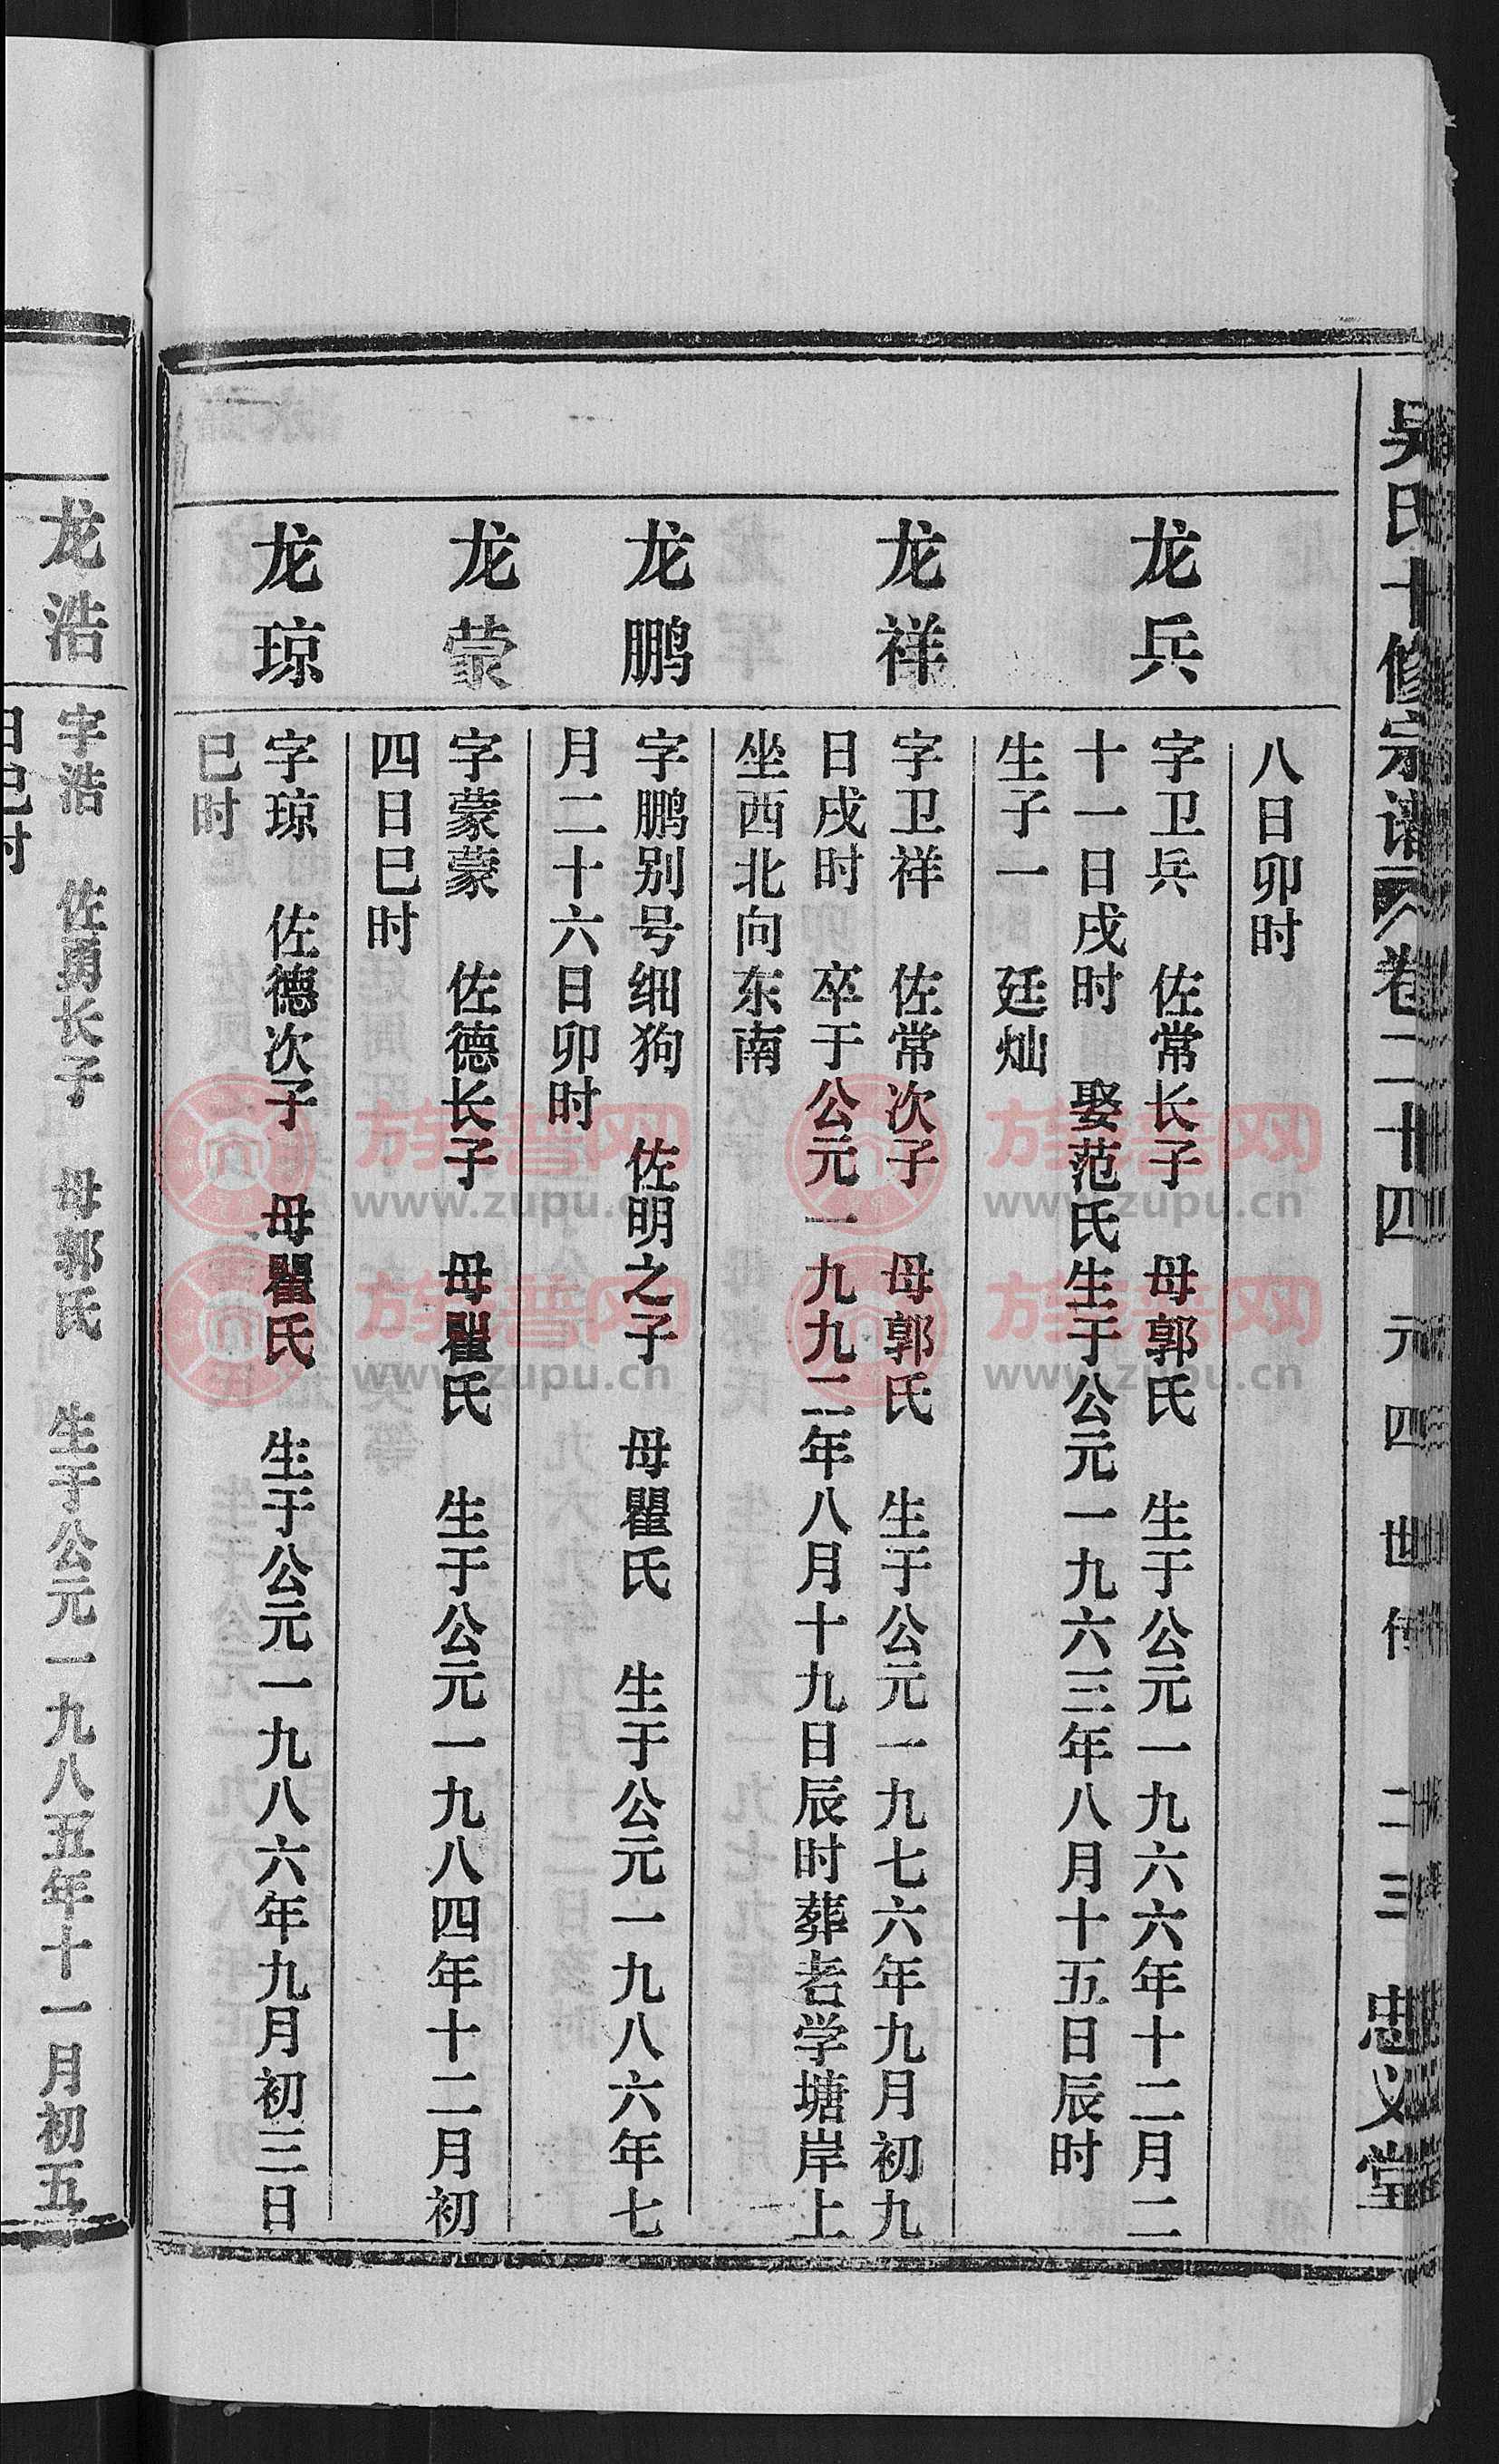 吴氏十修宗谱 卷二十四 元四世传 二三 忠义堂
八日卯时
龙兵
字卫兵 佐常长子 母郭氏 生于公元一九六六年十二月二
十一日戌时 娶范氏生于公元一九六三年八月十五日辰时
生子一 廷灿
龙祥
字卫祥 佐常次子 母郭氏 生于公元一九七六年九月初九
日戌时 卒于公元一九九二年八月十九日辰时葬老学塘岸上
坐西北向东南
龙鹏
字鹏别号细狗 佐明之子 母瞿氏 生于公元一九八六年七
月二十六日卯时
龙蒙
字蒙蒙 佐德长子 母瞿氏 生于公元一九八四年十二月初
四日巳时
龙琼
字琼 佐德次子 母瞿氏 生于公元一九八六年九月初三日
巳时
龙浩
字浩 佐勇长子 母郭氏 生于公元一九八五年十一月初五
日巳时
族谱网
www.zupu.cn
族谱网
www.zupu.cn
族谱网
www.zupu.cn
族谱网
www.zupu.cn